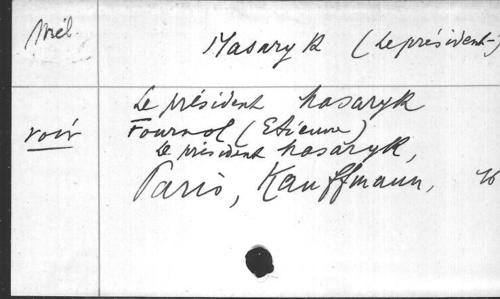 Mél.
Masaryk (Le président-)
Le président Masaryk
voir Fournol (Etienne)
Le président Masaryk,
Paris, Kauffmann,